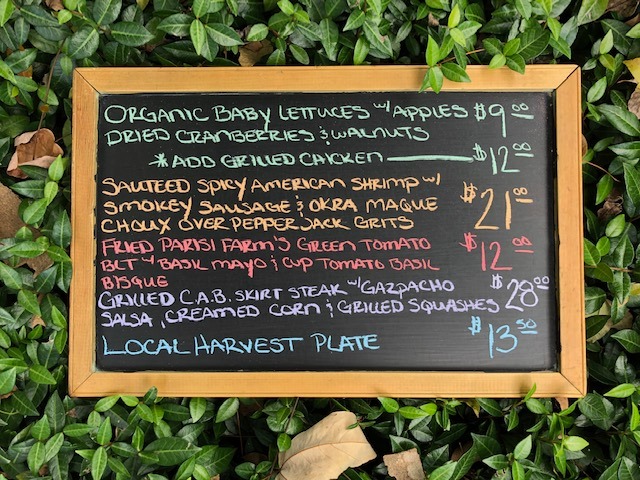 ORGANIC BABY LETTUCES w/ APPLES $9.00
DRIED CRANBERRIES & WALNUTS
*ADD GRILLED CHICKEN — $12.00
SAUTEED SPICY AMERICAN SHRIMP w/
SMOKEY SAUSAGE & OKRA MAQUE $21.00
CHOUX OVER PEPPER JACK GRITS
FRIED PARISI FARM'S GREEN TOMATO $12.00
BLT w/ BASIL MAYO & CUP TOMATO BASIL
BISQUE
GRILLED C.A.B. SKIRT STEAK w/ GAZPACHO $28.00
SALSA, CREAMED CORN & GRILLED SQUASHES
LOCAL HARVEST PLATE $13.50